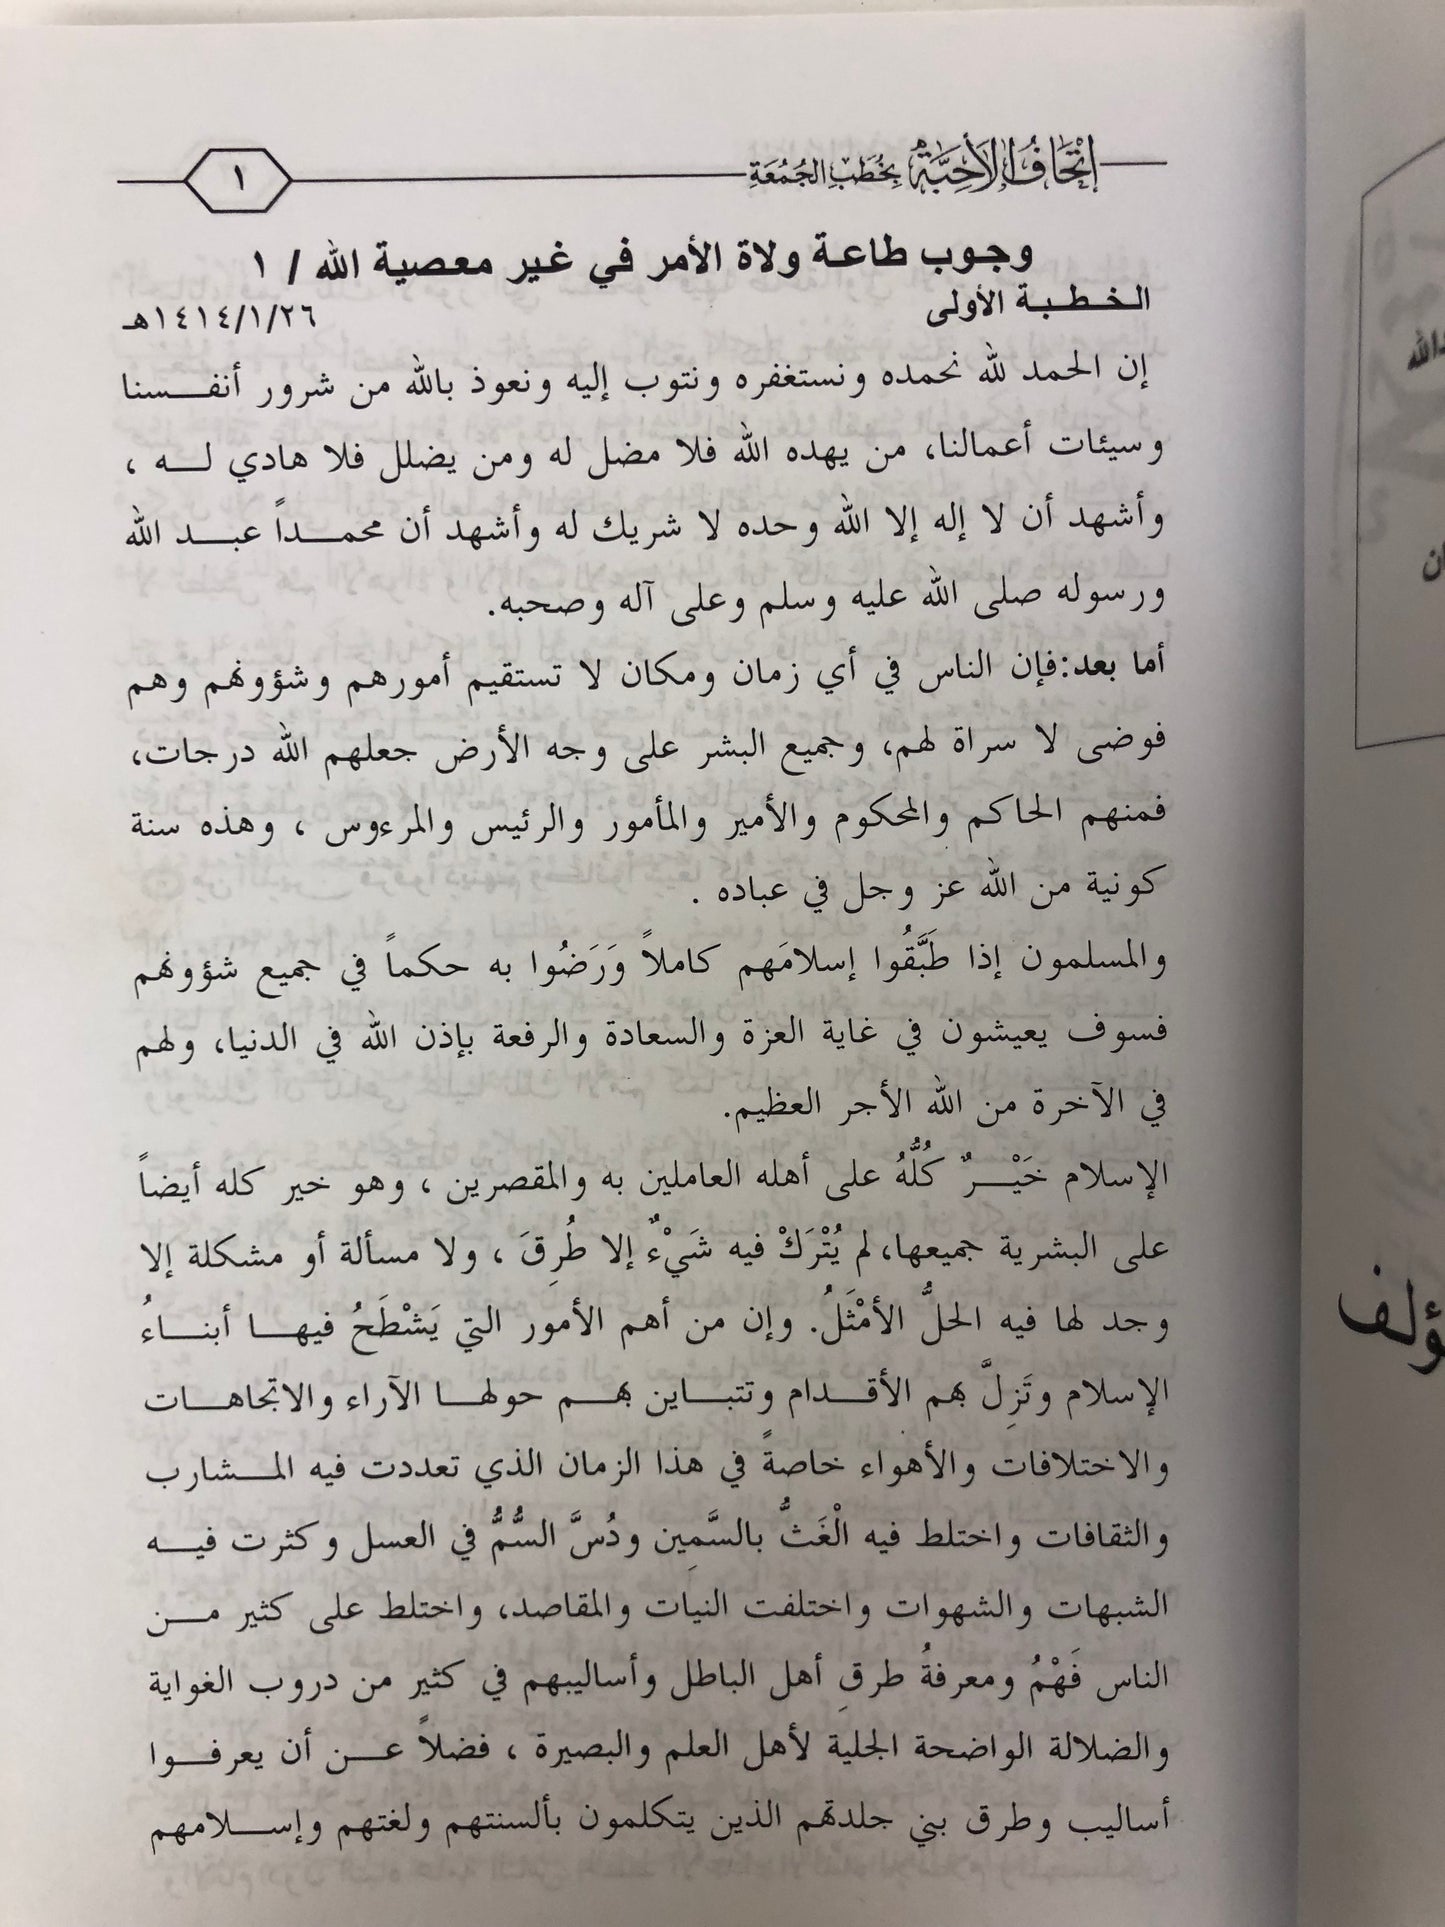 إتحاف الأحبة بخطب الجمعة
١
وجوب طاعة ولاة الأمر في غير معصية الله / ١
الخطبة الأولى
١٤١٤/١/٢٦هـ
إن الحمد لله نحمده ونستغفره ونتوب إليه ونعوذ بالله من شرور أنفسنا
وسيئات أعمالنا، من يهده الله فلا مضل له ومن يضلل فلا هادي له ،
وأشهد أن لا إله إلا الله وحده لا شريك له وأشهد أن محمداً عبد الله
ورسوله صلى الله عليه وسلم وعلى آله وصحبه.
أما بعد:فإن الناس في أي زمان ومكان لا تستقيم أمورهم وشؤونهم وهم
فوضى لا سراة لهم، وجميع البشر على وجه الأرض جعلهم الله درجات،
فمنهم الحاكم والمحكوم والأمير والمأمور والرئيس والمرءوس ، وهذه سنة
كونية من الله عز وجل في عباده .
والمسلمون إذا طَبَّقُوا إسلامَهم كاملاً وَرَضُوا به حكماً في جميع شؤونهم
فسوف يعيشون في غاية العزة والسعادة والرفعة بإذن الله في الدنيا، ولهم
في الآخرة من الله الأجر العظيم.
الإسلام خَيْرٌ كُلُّهُ على أهله العاملين به والمقصرين ، وهو خير كله أيضاً
على البشرية جميعها،لم يُتْرَكْ فيه شَيْءٌ إلا طُرِقَ ، ولا مسألة أو مشكلة إلا
وجد لها فيه الحلُّ الأمْثَلُ. وإن من أهم الأمور التي يَشْطَحُ فيها أبناءُ
الإسلام وتَزِلَّ بهم الأقدام وتتباين بهم حولها الآراء والاتجاهات
والاختلافات والأهواء خاصةً في هذا الزمان الذي تعددت فيه المشارب
والثقافات واختلط فيه الْغَثُّ بالسَّمِين ودُسَّ السُّمُّ في العسل وكثرت فيه
الشبهات والشهوات واختلفت النيات والمقاصد، واختلط على كثير من
الناس فَهْمُ ومعرفةُ طرقِ أهل الباطل وأساليبهم في كثير من دروب الغواية
والضلالة الواضحة الجلية لأهل العلم والبصيرة ، فضلاً عن أن يعرفوا
أساليب وطرق بني جلدتهم الذين يتكلمون بألسنتهم ولغتهم وإسلامهم